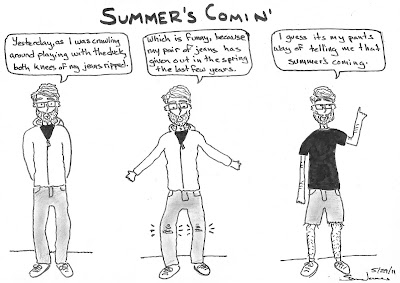 SUMMER'S COMIN'
Yesterday, as I was crawling
around playing with the dick,
both knees of my jeans ripped.
Which is funny, because
my pair of jeans has
given out in the spring
the last few years.
I guess its my pants
way of telling me that
summer's coming.
5/29/11